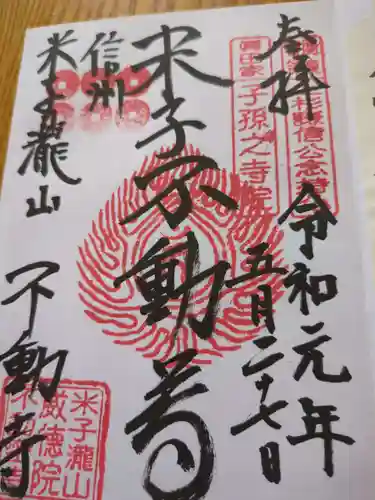 奉拝
令和元年
五月二十七日
眞田家
子孫之寺院
米子不動尊
信州
米子瀧山
不動寺
米子瀧山
威徳院